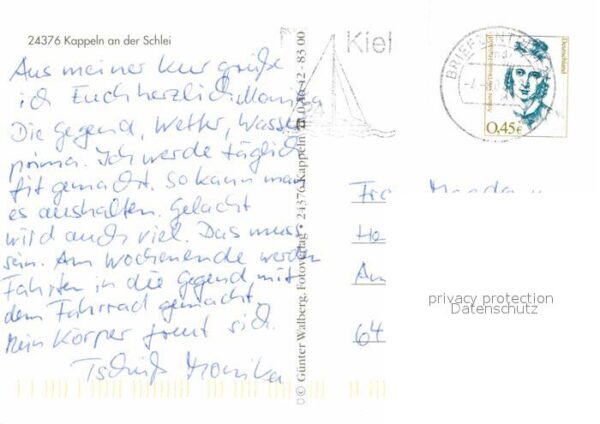 24376 Kappeln an der Schlei
Aus meiner Kur grüße
ich Euch herzlich. Monika
Die Gegend, Wetter, Wasser
prima. Ich werde täglich
fit gemacht. So kann man
es aushalten. Gelacht
wird auch viel. Das muss
sein. Am Wochenende werden
Fahrten in die Gegend mit
dem Fahrrad gemacht.
Mein Körper freut sich.
Tschüß Monika
© Günter Walberg, Fotoverlag • 24376 Kappeln
Kiel
BRIEFZENTRUM
Deutschland
0,45€
Ha
Am
64
privacy protection
Datenschutz